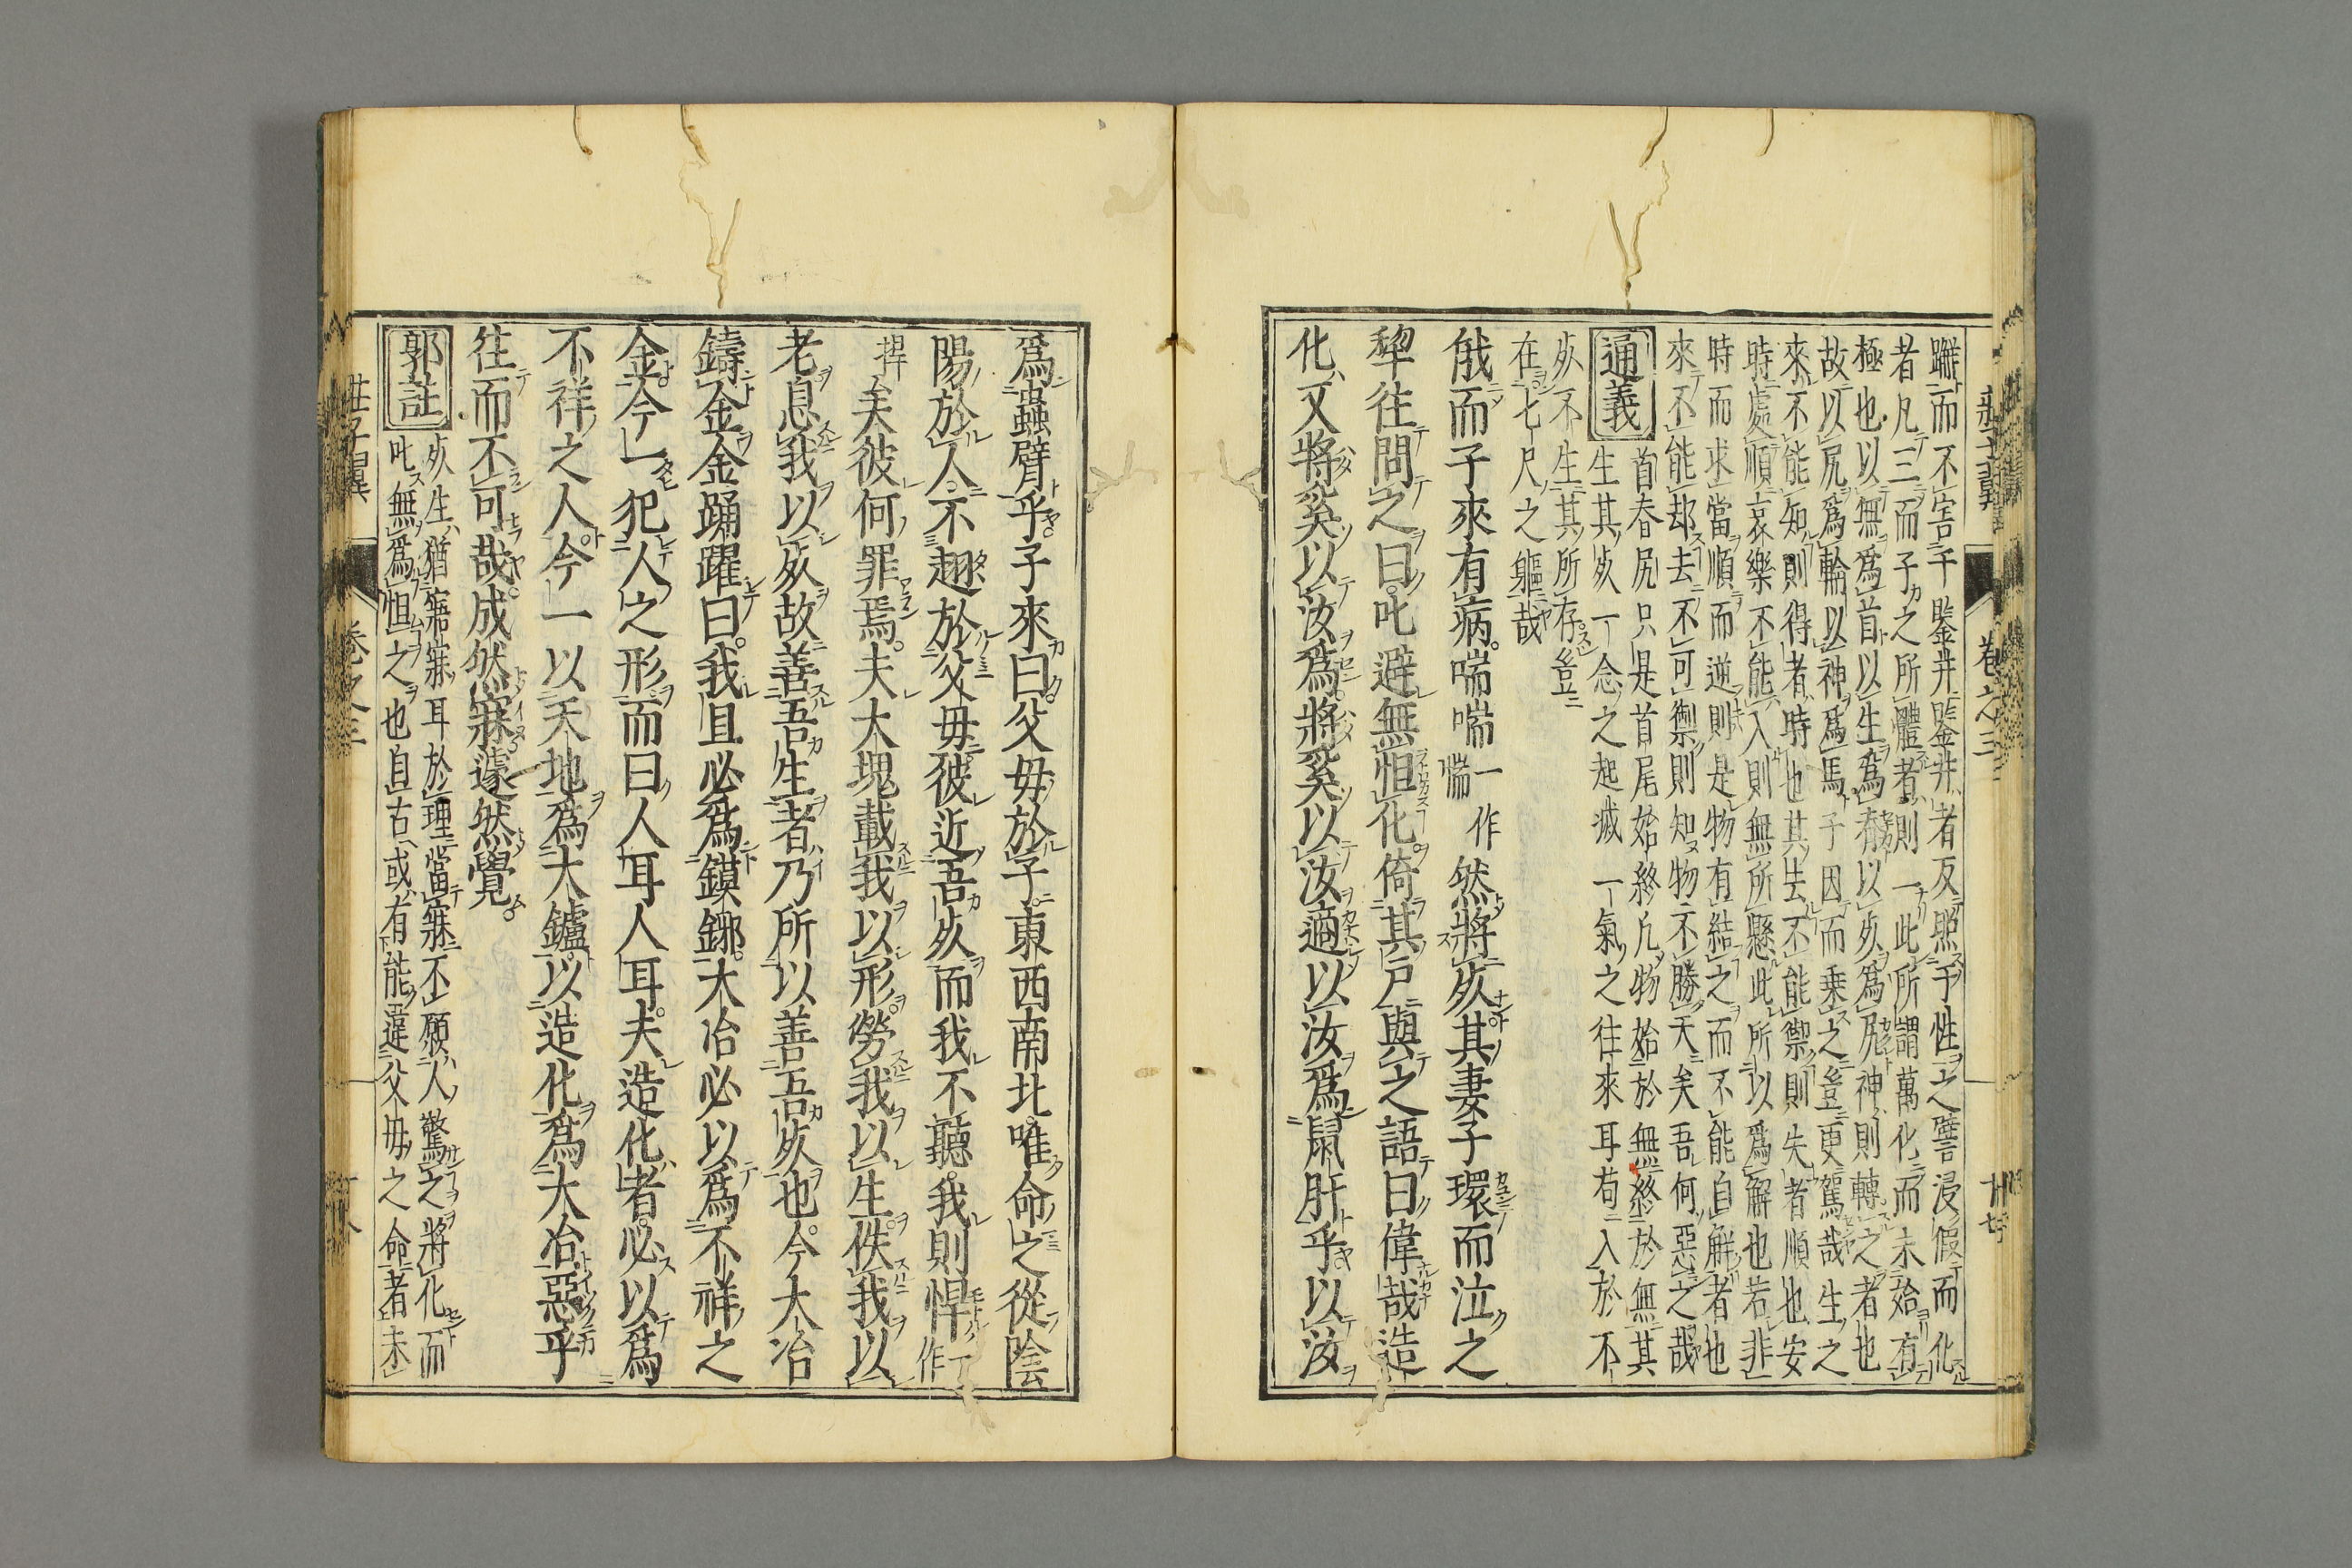 而不害于鑒井鑒井者反照于性之譬浸假而化
者凡三而子之所體者則一此所謂萬化而未始有
極也以無爲首以生爲脊以死爲尻神則轉之者也
故以尻爲輪以神爲馬子因而乗之豈更駕哉生之
來不能知則得者時也其去不能禦則失者順也安
時處順哀樂不能入則無所懸此所以爲解也若非
時而求當順而逆則是物有結之而不能自解者也
來不能却去不可禦則知物不勝天矣吾何惡之哉
通義
首春尻只是首尾始終凡物始於無終於無其
生其死一念之起滅一氣之往來耳苟入於不
死不生其所存豈
在七尺之軀哉
俄而子來有病。喘喘一作惴然將死其妻子環而泣之
犂往問之曰。叱避無怛化倚其戸與之語曰偉哉造
化又將奚以汝爲將奚以汝適以汝爲鼠肝乎以汝
莊子翼 卷之三 廿七
爲蟲臂乎。子來曰父母於子東西南北唯命之從陰
陽於人不翅於父母彼近吾死而我不聽我則悍一作
捍矣彼何罪焉。夫大塊載我以形勞我以生佚我以
老息我以死故善吾生者乃所以善吾死也。今大冶
鑄金金踊躍曰。我且必爲鏌鋣。大冶必以爲不祥之
金今一犯人之形而曰人耳人耳。夫造化者必以爲
不祥之人今一以天地爲大鑪。以造化爲大冶惡乎
往而不可哉。成然寐蘧然覺。
郭註
死生猶寤寐耳於理當寐不願人驚之將化而
叱無爲怛之也自古或有能違父母之命者未
莊子翼 卷之三 廿八